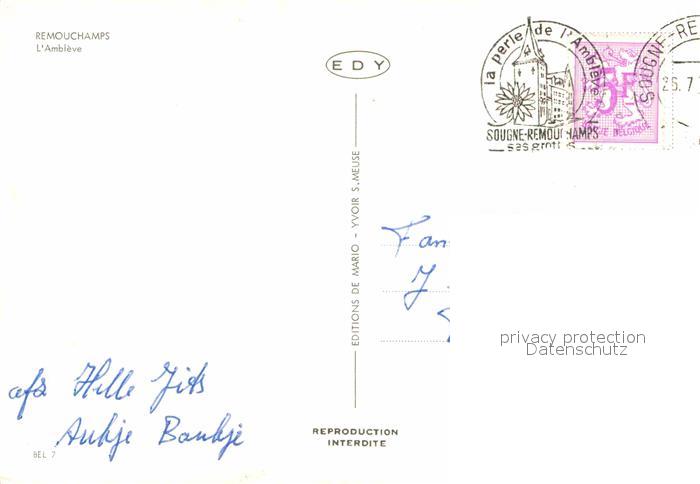 REMOUCHAMPS
L'Amblève
EDY
la perle de l'Amblève
SOUGNE-REMOUCHAMPS
ses grott
SOUGNE-RE
26.7
5F
BELGIQUE
EDITIONS DE MARIO - YVOIR S. MEUSE
Fam
J.
privacy protection
Datenschutz
afz Hille Jits
Aukje Baukje
BEL 7
REPRODUCTION
INTERDITE